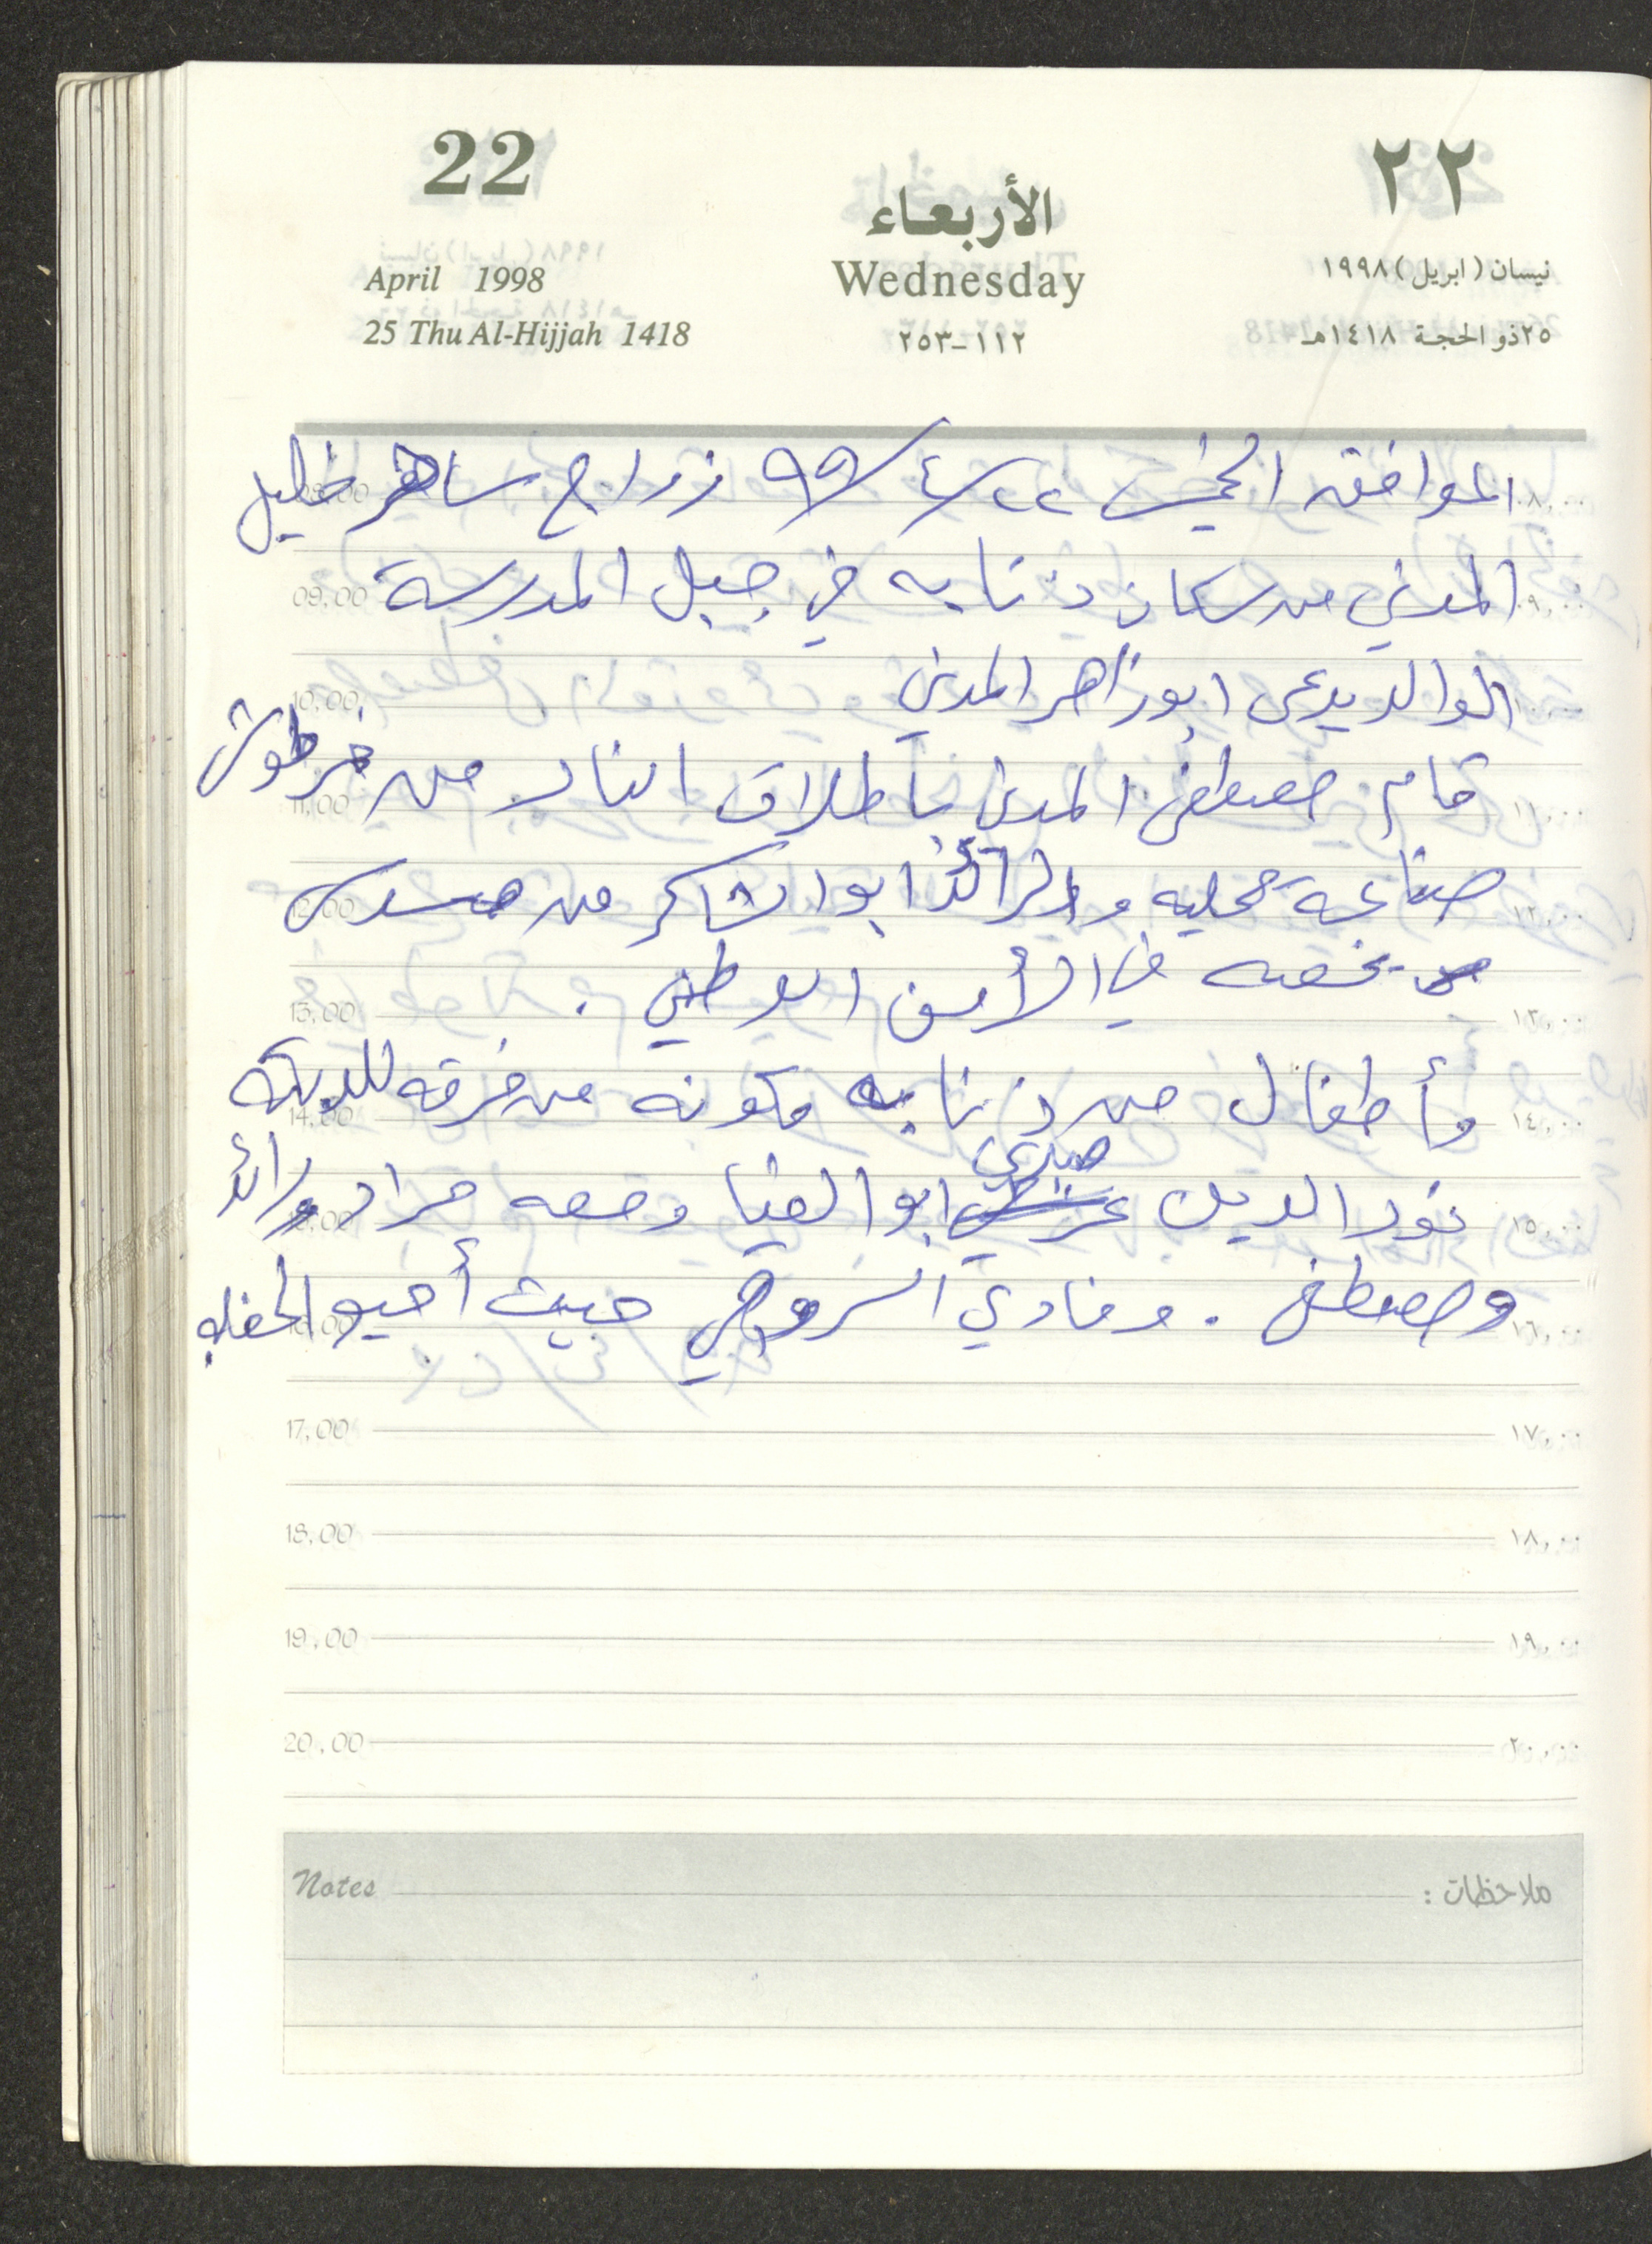 22
٢٢
الأربعاء
Wednesday
April 1998
نيسان (ابريل) ١٩٩٨
25 Thu Al-Hijjah 1418
١١٢-٢٥٣
٢٥ ذو الحجة ١٤١٨هـ
الموافق الخميس ٢٢/٤/٩٩ زواج ساهر خليل
المدني من سكان ذنابه في جبل المدرسة
الوالد يدعى ابو زاهر المدني
قام مصطفى المدني باطلاق النار من خرطوش
صناعة محليه والرائد ابو الشاكر من مسدس
يخصه في الأمن الوطني .
وأطفال من ذنابه مكونه من فرقه للدبكة
نور الدين صبري ابو الضيا ومعه مراد ورائد
ومصطفى . وفادي السروجي حيث أحيو الحفله
08,00 ٠٨,٠٠
09,00 ٠٩,٠٠
10,00 ١٠,٠٠
11,00 ١١,٠٠
12,00 ١٢,٠٠
13,00 ١٣,٠٠
14,00 ١٤,٠٠
15,00 ١٥,٠٠
16,00 ١٦,٠٠
17,00 ١٧,٠٠
18,00 ١٨,٠٠
19,00 ١٩,٠٠
20,00 ٢٠,٠٠
Notes ملاحظات :